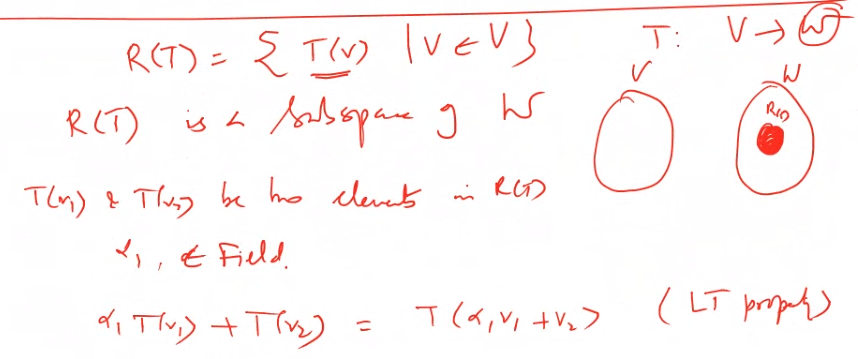 R(T) = { T(v) | v ∈ V }
T: V → W
R(T) is a subspace of W
V
W
R(T)
T(v₁) & T(v₂) be two elements in R(T)
α₁, ∈ Field.
α₁ T(v₁) + T(v₂) = T(α₁v₁ + v₂) (LT property)